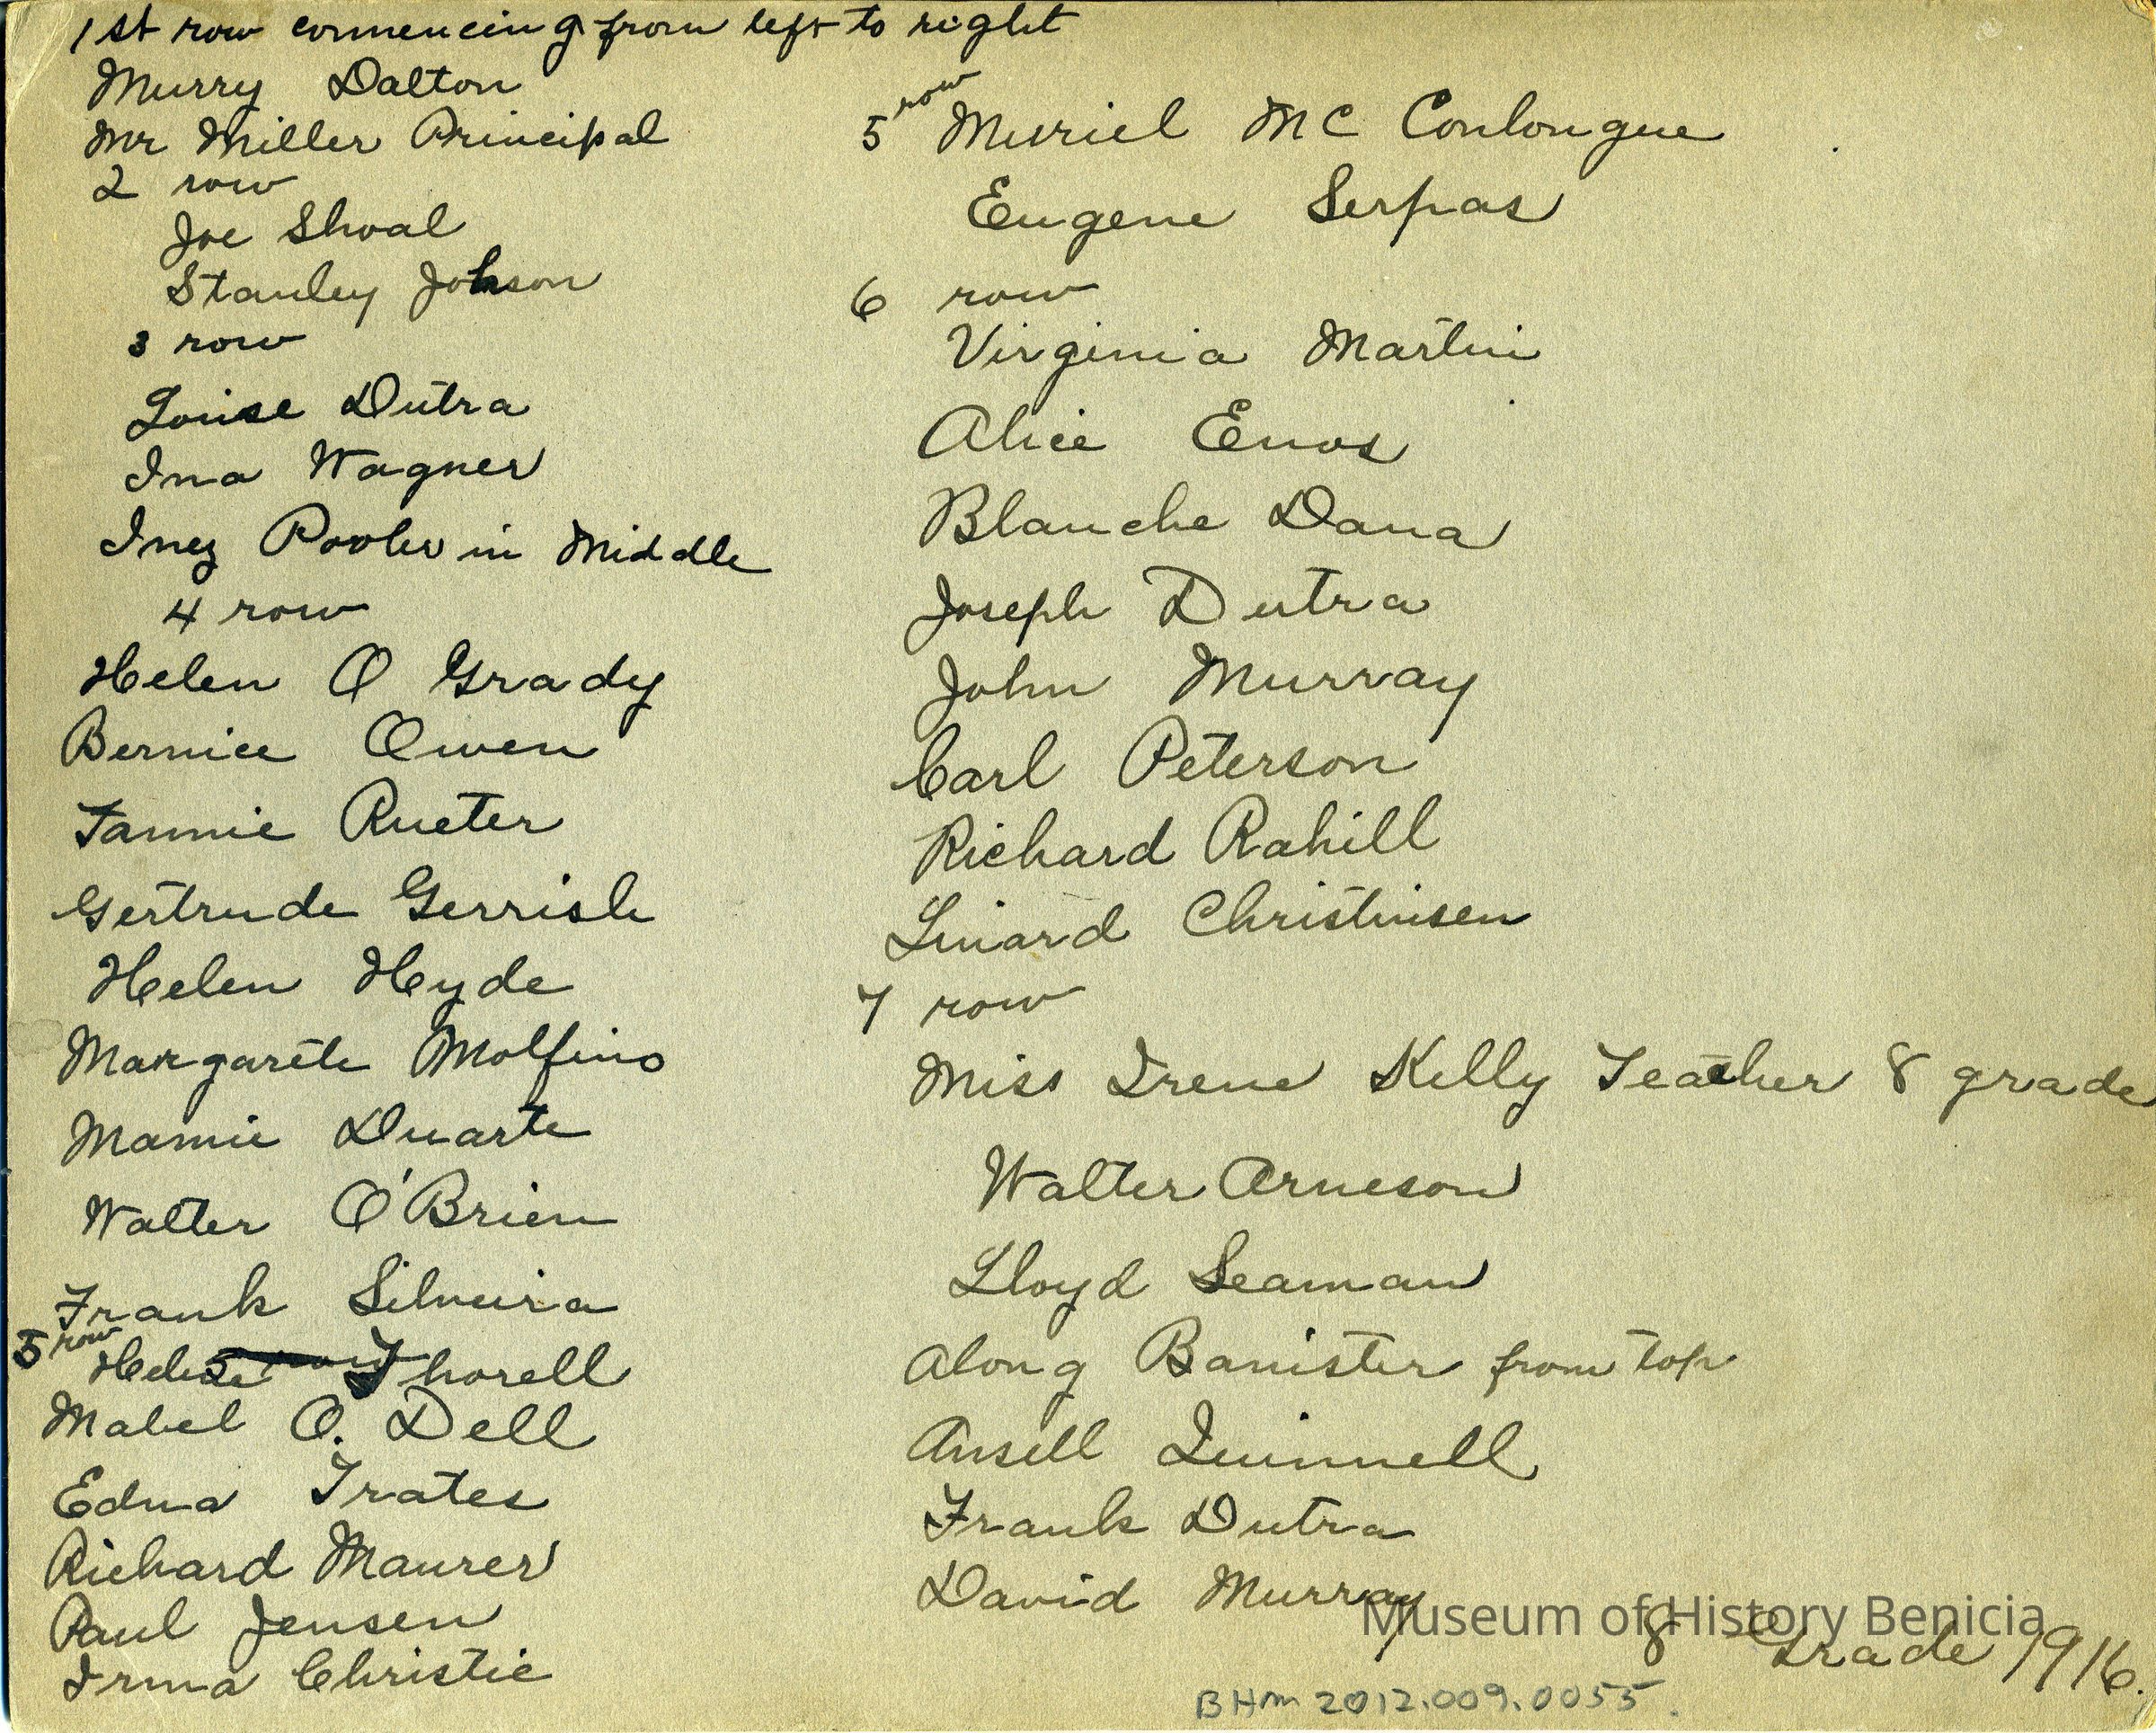 1st row commencing from left to right
Murry Dalton
Mr Miller Principal
2 row
Joe Shoal
Stanley Johson
3 row
Louise Dutra
Ina Wagner
Inez Pooler in Middle
4 row
Helen O Grady
Bernice Owen
Fannie Rueter
Gertrude Gerrish
Helen Heyde
Margarete Molfino
Mamie Duarte
Walter O'Brien
Frank Silveira
5 row
Thorell
Mabel O. Dell
Edna Trates
Richard Maurer
Paul Jensen
Irma Christie
5 row Muriel Mc Conlongue
Eugene Serpas
6 row
Virginia Martini
Alice Enos
Blanche Dana
Joseph Dutra
John Murray
Carl Peterson
Richard Rahill
Linard Christinsen
7 row
Miss Irene Kelly Teacher 8 grade
Walter Arneson
Lloyd Seaman
Along Banister from top
Ansell Quinnell
Frank Dutra
David Murray
Museum of History Benicia
8 Grade 1916.
BHM 2012.009.0055.